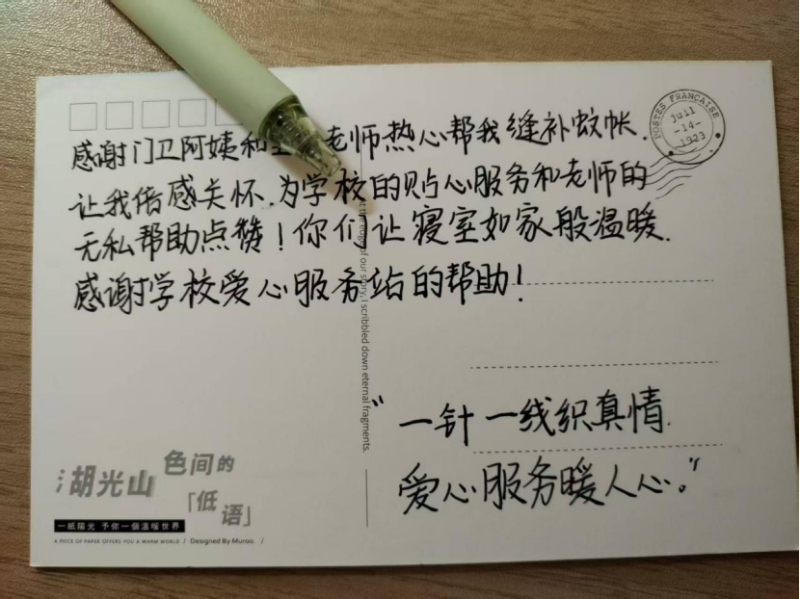 感谢门卫阿姨和 老师热心帮我缝补蚊帐.
让我倍感关怀.为学校的贴心服务和老师的
无私帮助点赞！你们让寝室如家般温暖.
感谢学校爱心服务站的帮助！
"一针一线织真情.
爱心服务暖人心。"
POSTES FRANCAISE
Juil
-14-
1923
of our story, I scribbled down eternal fragments.
湖光山色间的
「低语」
一纸陽光 予你一個溫暖世界
A PIECE OF PAPER OFFERS YOU A WARM WORLD / Designed By Muroo. /